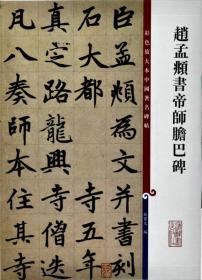 趙孟頫書帝師膽巴碑
彩色放大本中國著名碑帖
臣孟頫為并書刻
石大都寺五年
真定路龍興寺僧迭
凡八奏師本住其寺